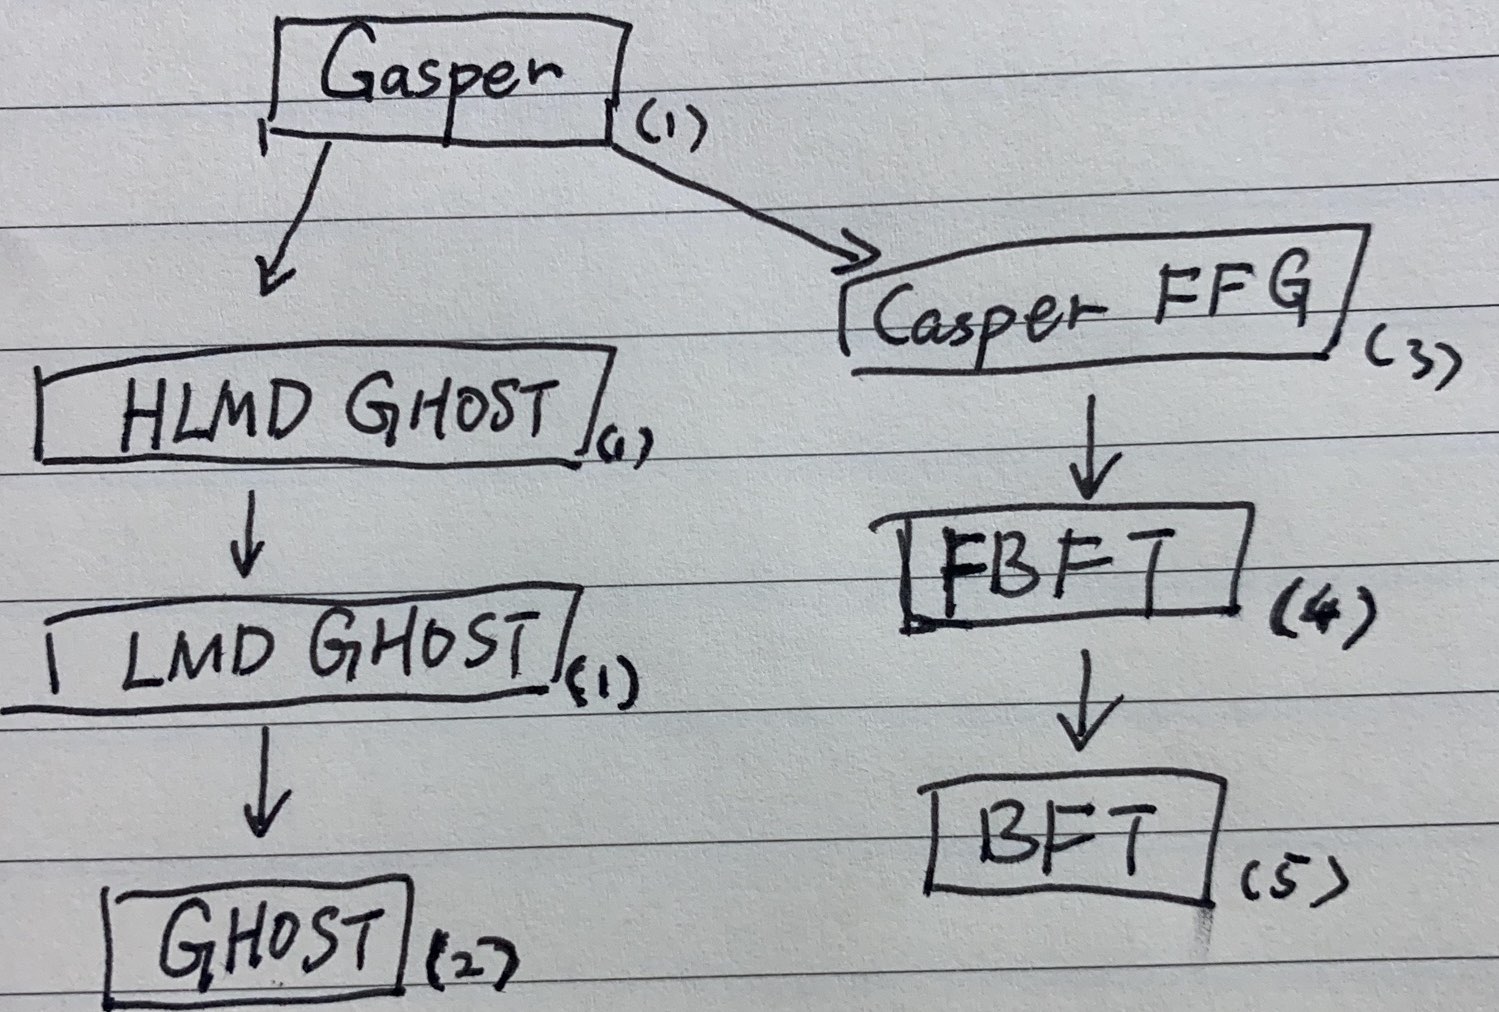 Gasper (1)
HLMD GHOST (1)
LMD GHOST (1)
GHOST (2)
Casper FFG (3)
FBFT (4)
BFT (5)